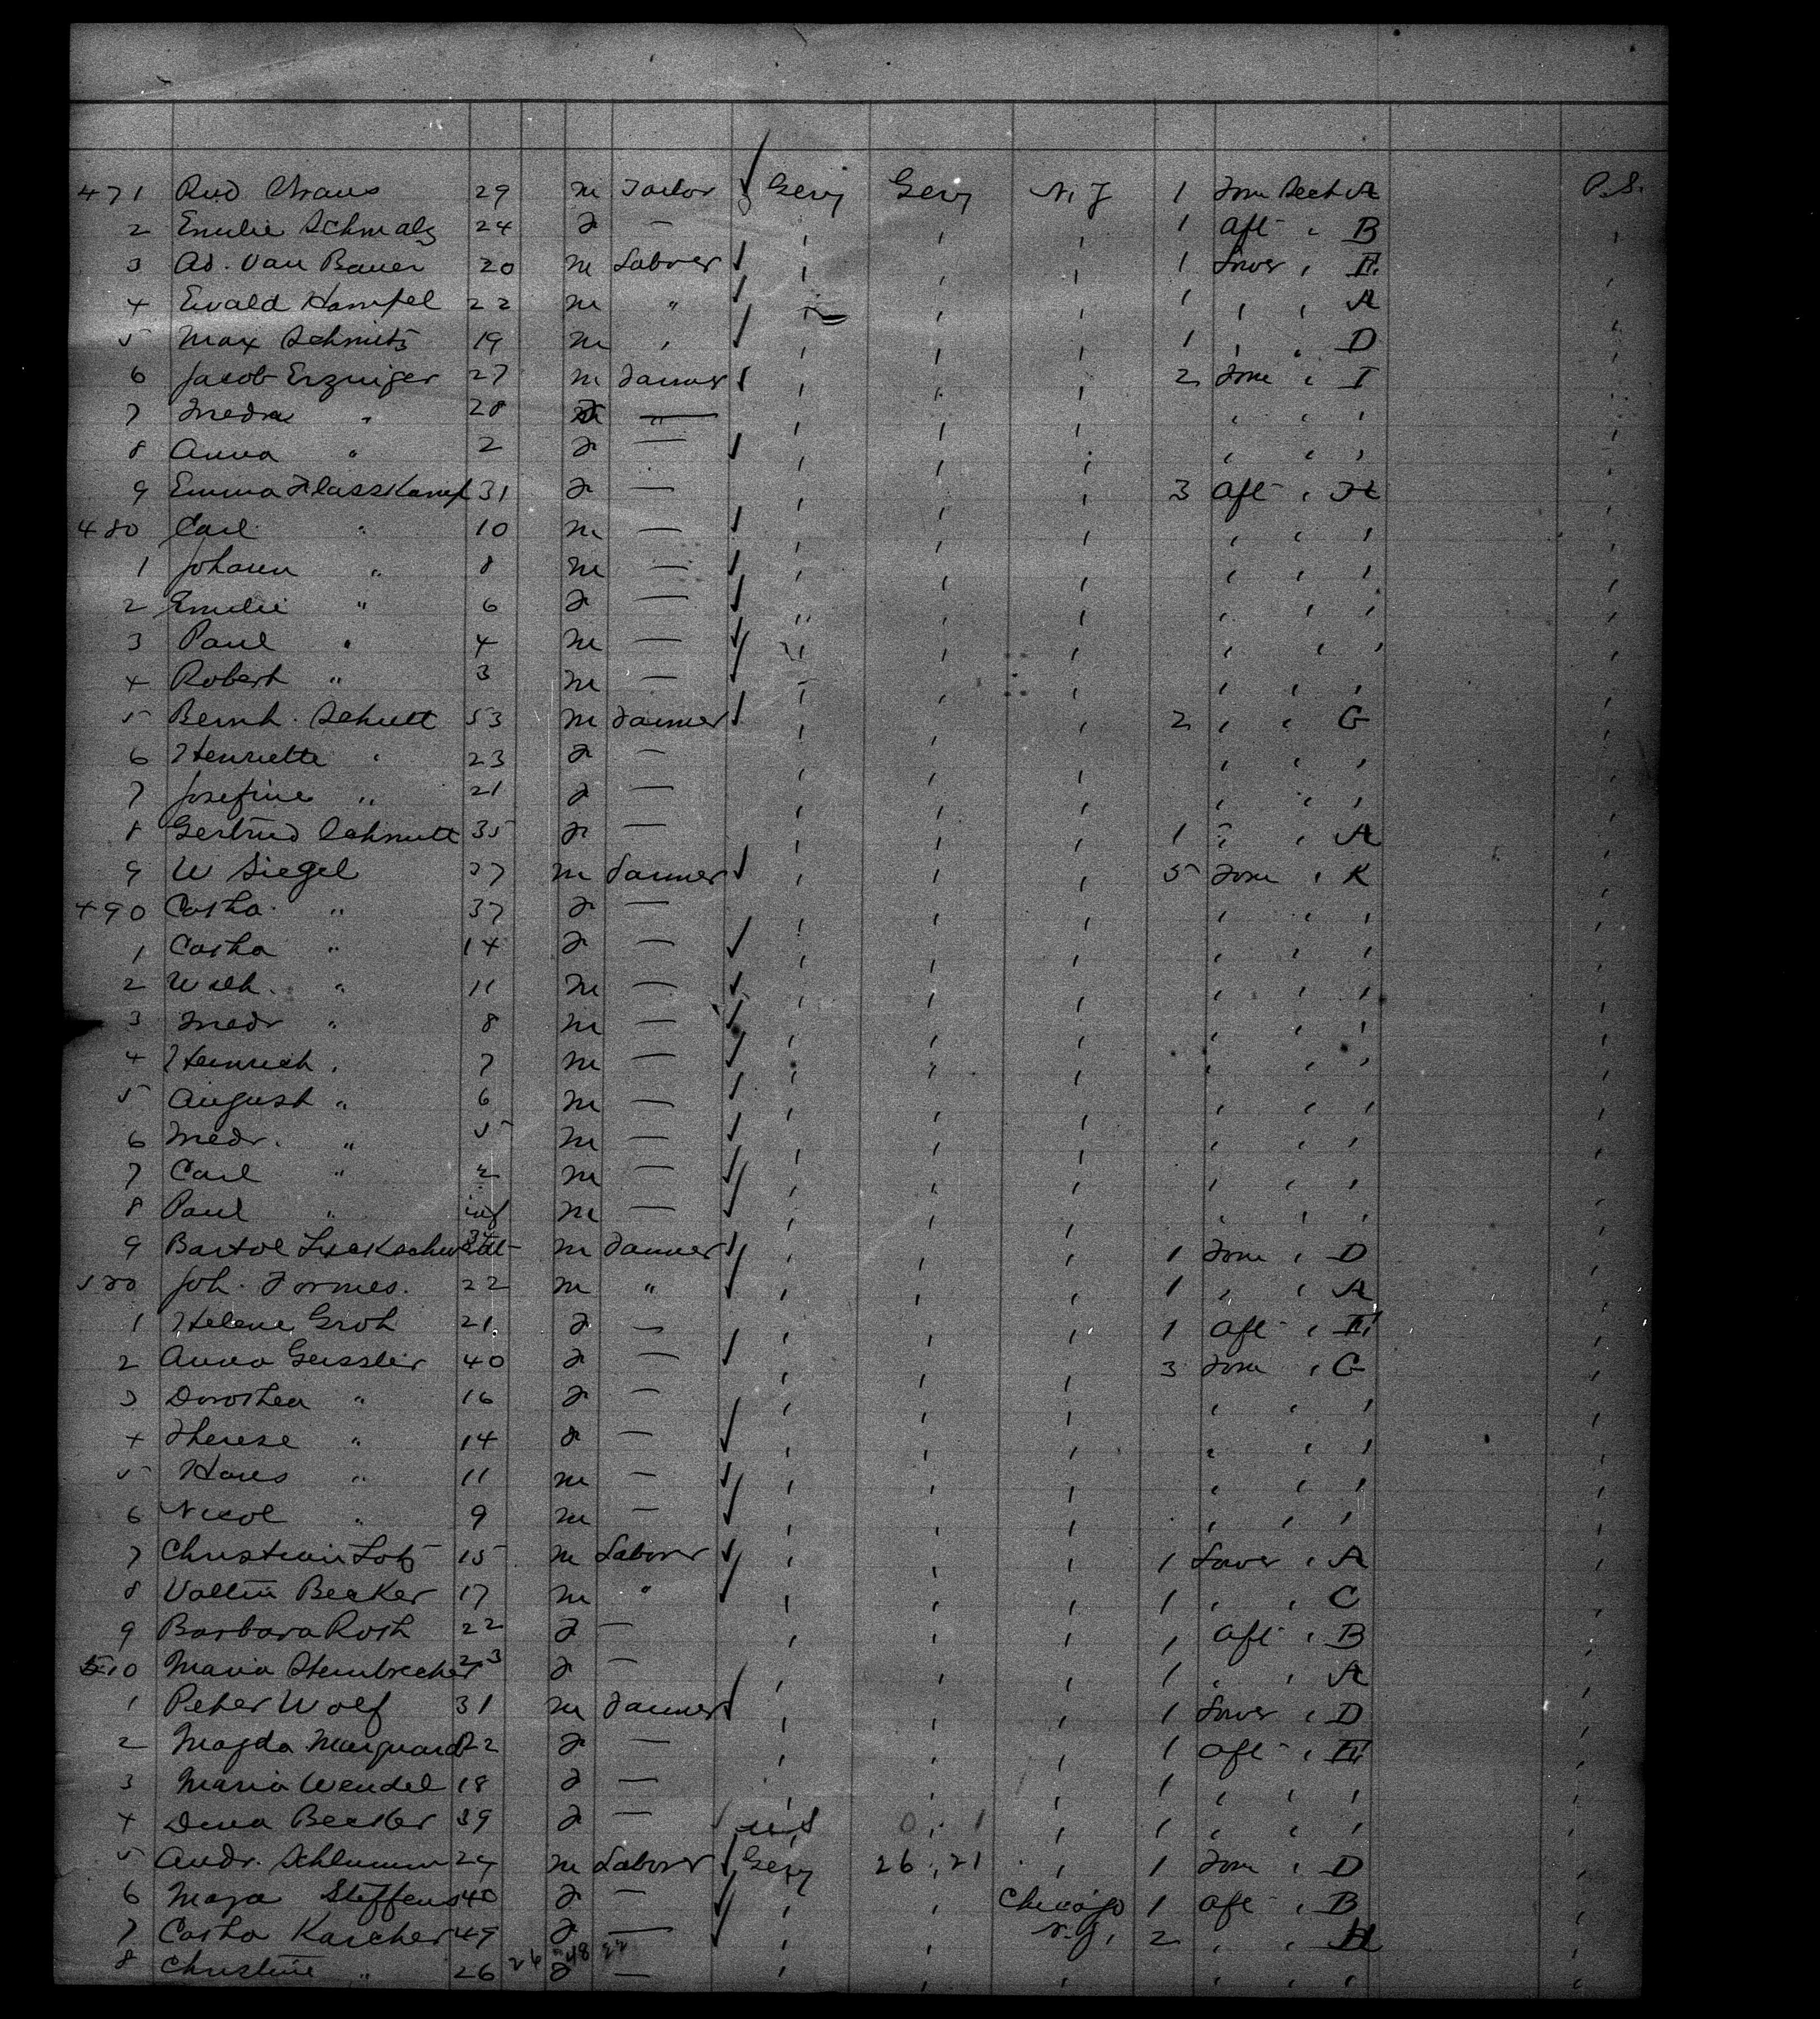 471 Rud Chraus 29 m Tailor Gery Gery N.Y 1 Forw Sect A P.S.
2 Emilie Schmalz 24 F — , , , 1 Aft " B ,
3 Ad. Van Bauer 20 m Laborer , , , 1 Lower , ,
4 Ewald Hampel 22 m " , , , 1 , , A ,
5 Max Schmitz 19 m , , , , 1 , , D ,
6 Jacob Erzinger 27 m Farmer , , , 2 Forw , I ,
7 " 28 F — , , , , , , ,
8 Anna " 2 F — , , , , , , ,
9 Emma Flasskamp 31 F — , , , 3 Aft , H ,
480 Carl " 10 m — , , , , , , ,
1 Johann " 8 m — , , , , , , ,
2 Emilie " 6 F — , , , , , , ,
3 Paul " 4 m — , , , , , , ,
4 Robert " 3 m — , , , , , , ,
5 Bernh. Schutt 53 m Farmer , , , 2 , , G ,
6 Henriette " 23 F — , , , , , , ,
7 Josefine " 21 F — , , , , , , ,
8 Gertrud Schmitt 35 F — , , , 1 , , A ,
9 W Siegel 37 m Farmer , , , 5 Forw , K ,
490 Catha. " 37 F — , , , , , , ,
1 Catha " 14 F — , , , , , , ,
2 Wilh. " 11 m — , , , , , , ,
3 Friedr " 8 m — , , , , , , ,
4 Heinrich , 7 m — , , , , , , ,
5 August " 6 m — , , , , , , ,
6 Friedr. " 5 m — , , , , , , ,
7 Carl " 2 m — , , , , , , ,
8 Paul " inf m — , , , , , , ,
9 Bartol m Farmer , , , 1 Forw , D ,
500 Joh. Formes. 22 m " , , , 1 , , A ,
1 Helene Groh 21 F — , , , 1 Aft , ,
2 Anna Geissler 40 F — , , , 3 Forw , G ,
3 Dorothea " 16 F — , , , , , , ,
4 Therese " 14 F — , , , , , , ,
5 Hans " 11 m — , , , , , , ,
6 Nicol " 9 m — , , , , , , ,
7 Christian Lotz 15 m Laborer , , , 1 Lower , A ,
8 Valtin Becker 17 m " , , , 1 , , C ,
9 Barbara Roth 22 F — , , , 1 Aft , B ,
510 Maria Steinbrecher 23 F — , , , 1 , , A ,
1 Peter Wolf 31 m Farmer , , , 1 Lower , D ,
2 Magda Marquardt 22 F — , , , 1 Aft , ,
3 Maria Wendel 18 F — , , , 1 , , , ,
4 Dina Becker 39 F — U.S 0 , 1 , 1 , , , ,
5 Andr. Schlumm 29 m Laborer Gery 26 , 21 , 1 Forw , D ,
6 Steffens 40 F — , , Chicago 1 Aft , B ,
7 Catha Karcher 49 F — , , N.Y, 2 , , H ,
8 Christine " 26 26 48 22 F — , , , , , , ,